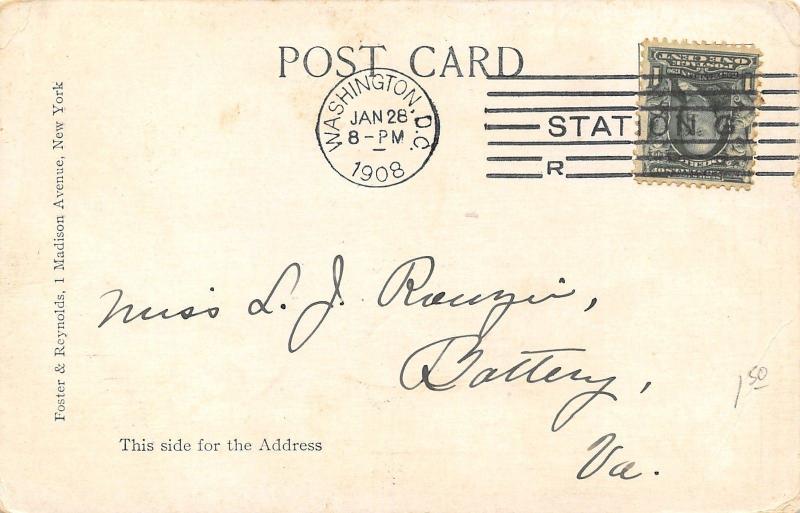 POST CARD
WASHINGTON, D.C.
JAN 28
8-PM
1908
STATION G
R
ONE CENT
Foster & Reynolds, 1 Madison Avenue, New York
Miss L. J. Rouzie,
Battery,
Va.
1 50
This side for the Address